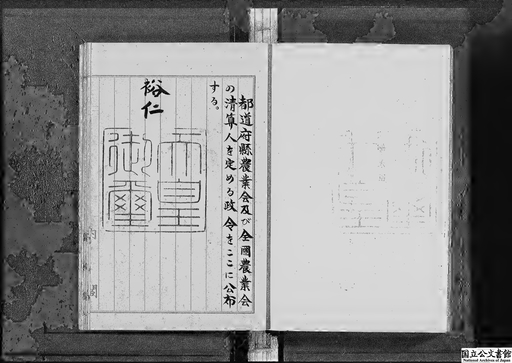 都道府縣農業会及び全國農業会
の清算人を定める政令をここに公布
する。
裕仁
天皇
御璽
内閣
国立公文書館
National Archives of Japan